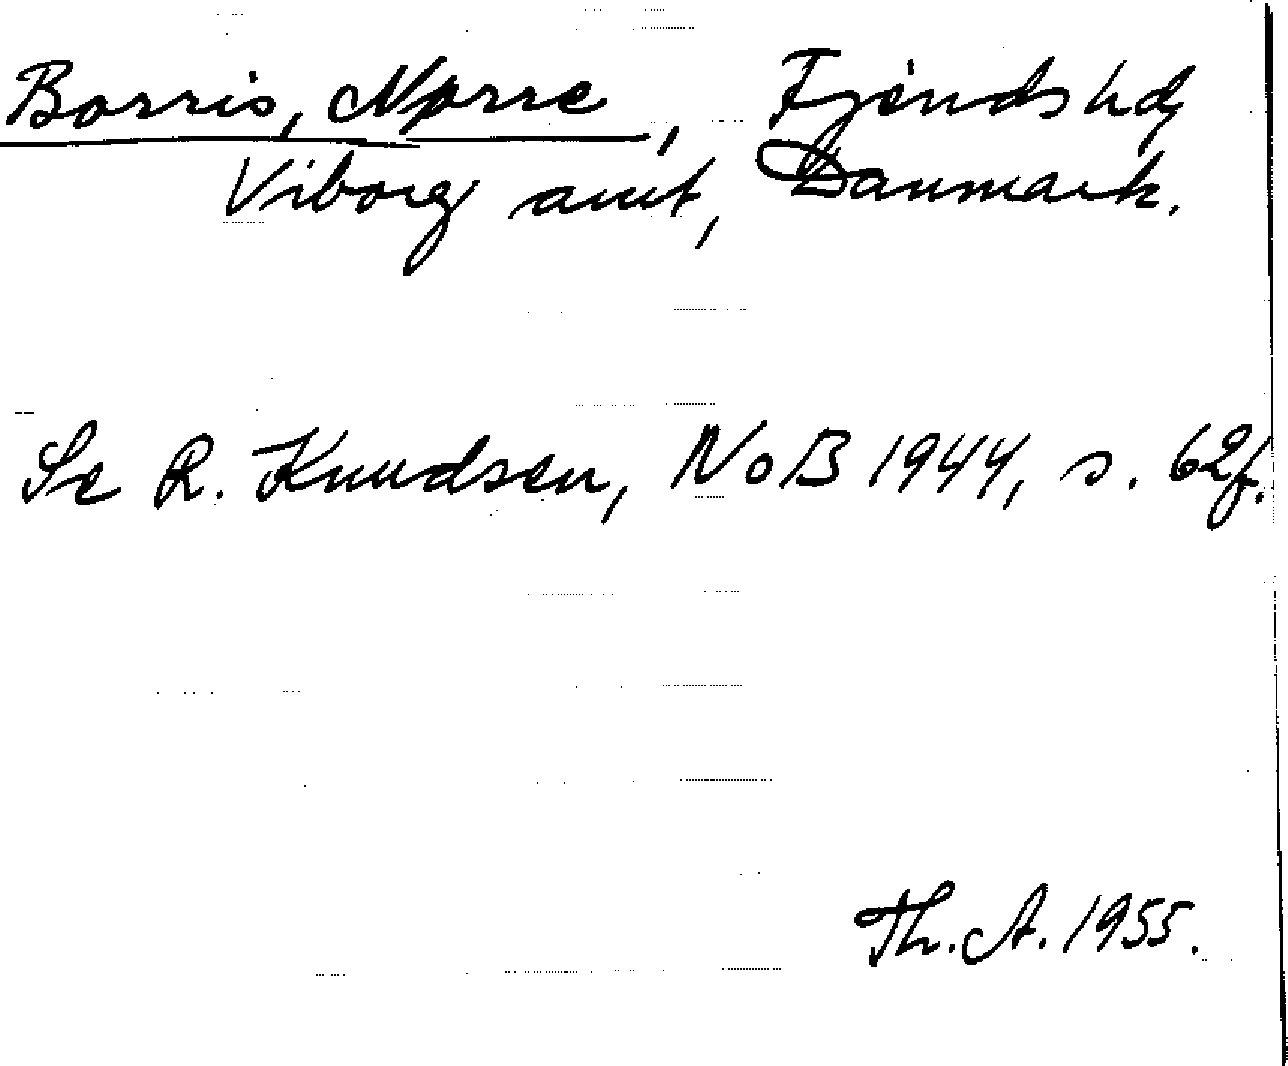 Borris, Nørre, Fjends hd
Viborg amt, Danmark.
Se R. Knudsen, NoB 1944, s. 62f.
Th. A. 1955.